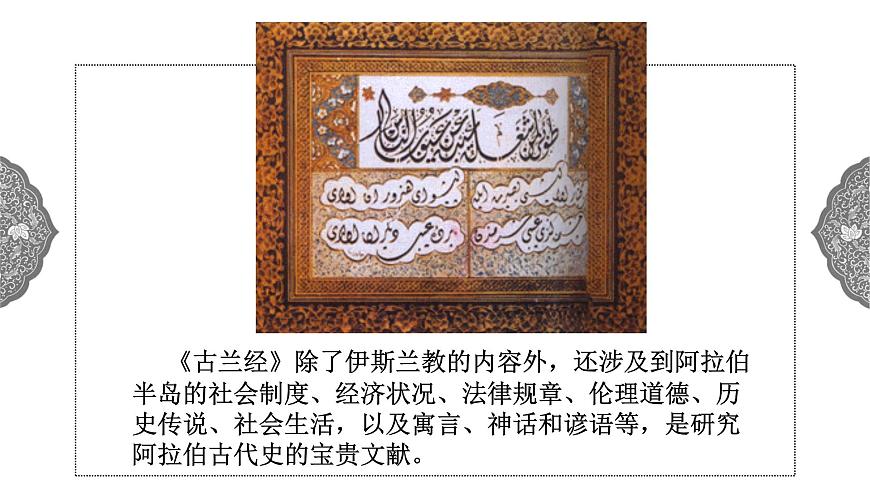 طوبى لمن شغله عيبه عن عيوب الناس
《古兰经》除了伊斯兰教的内容外，还涉及到阿拉伯
半岛的社会制度、经济状况、法律规章、伦理道德、历
史传说、社会生活，以及寓言、神话和谚语等，是研究
阿拉伯古代史的宝贵文献。